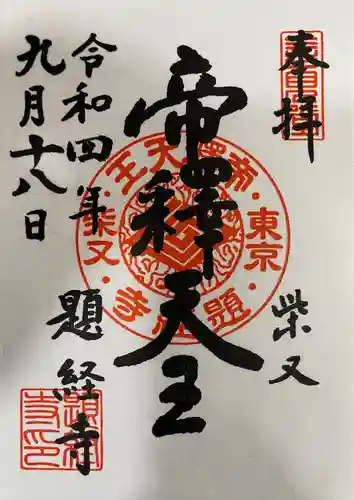 奉拝
柴又
帝釋天王
令和四年
九月十八日
題経寺
帝釋天王
東京
柴又
題経寺